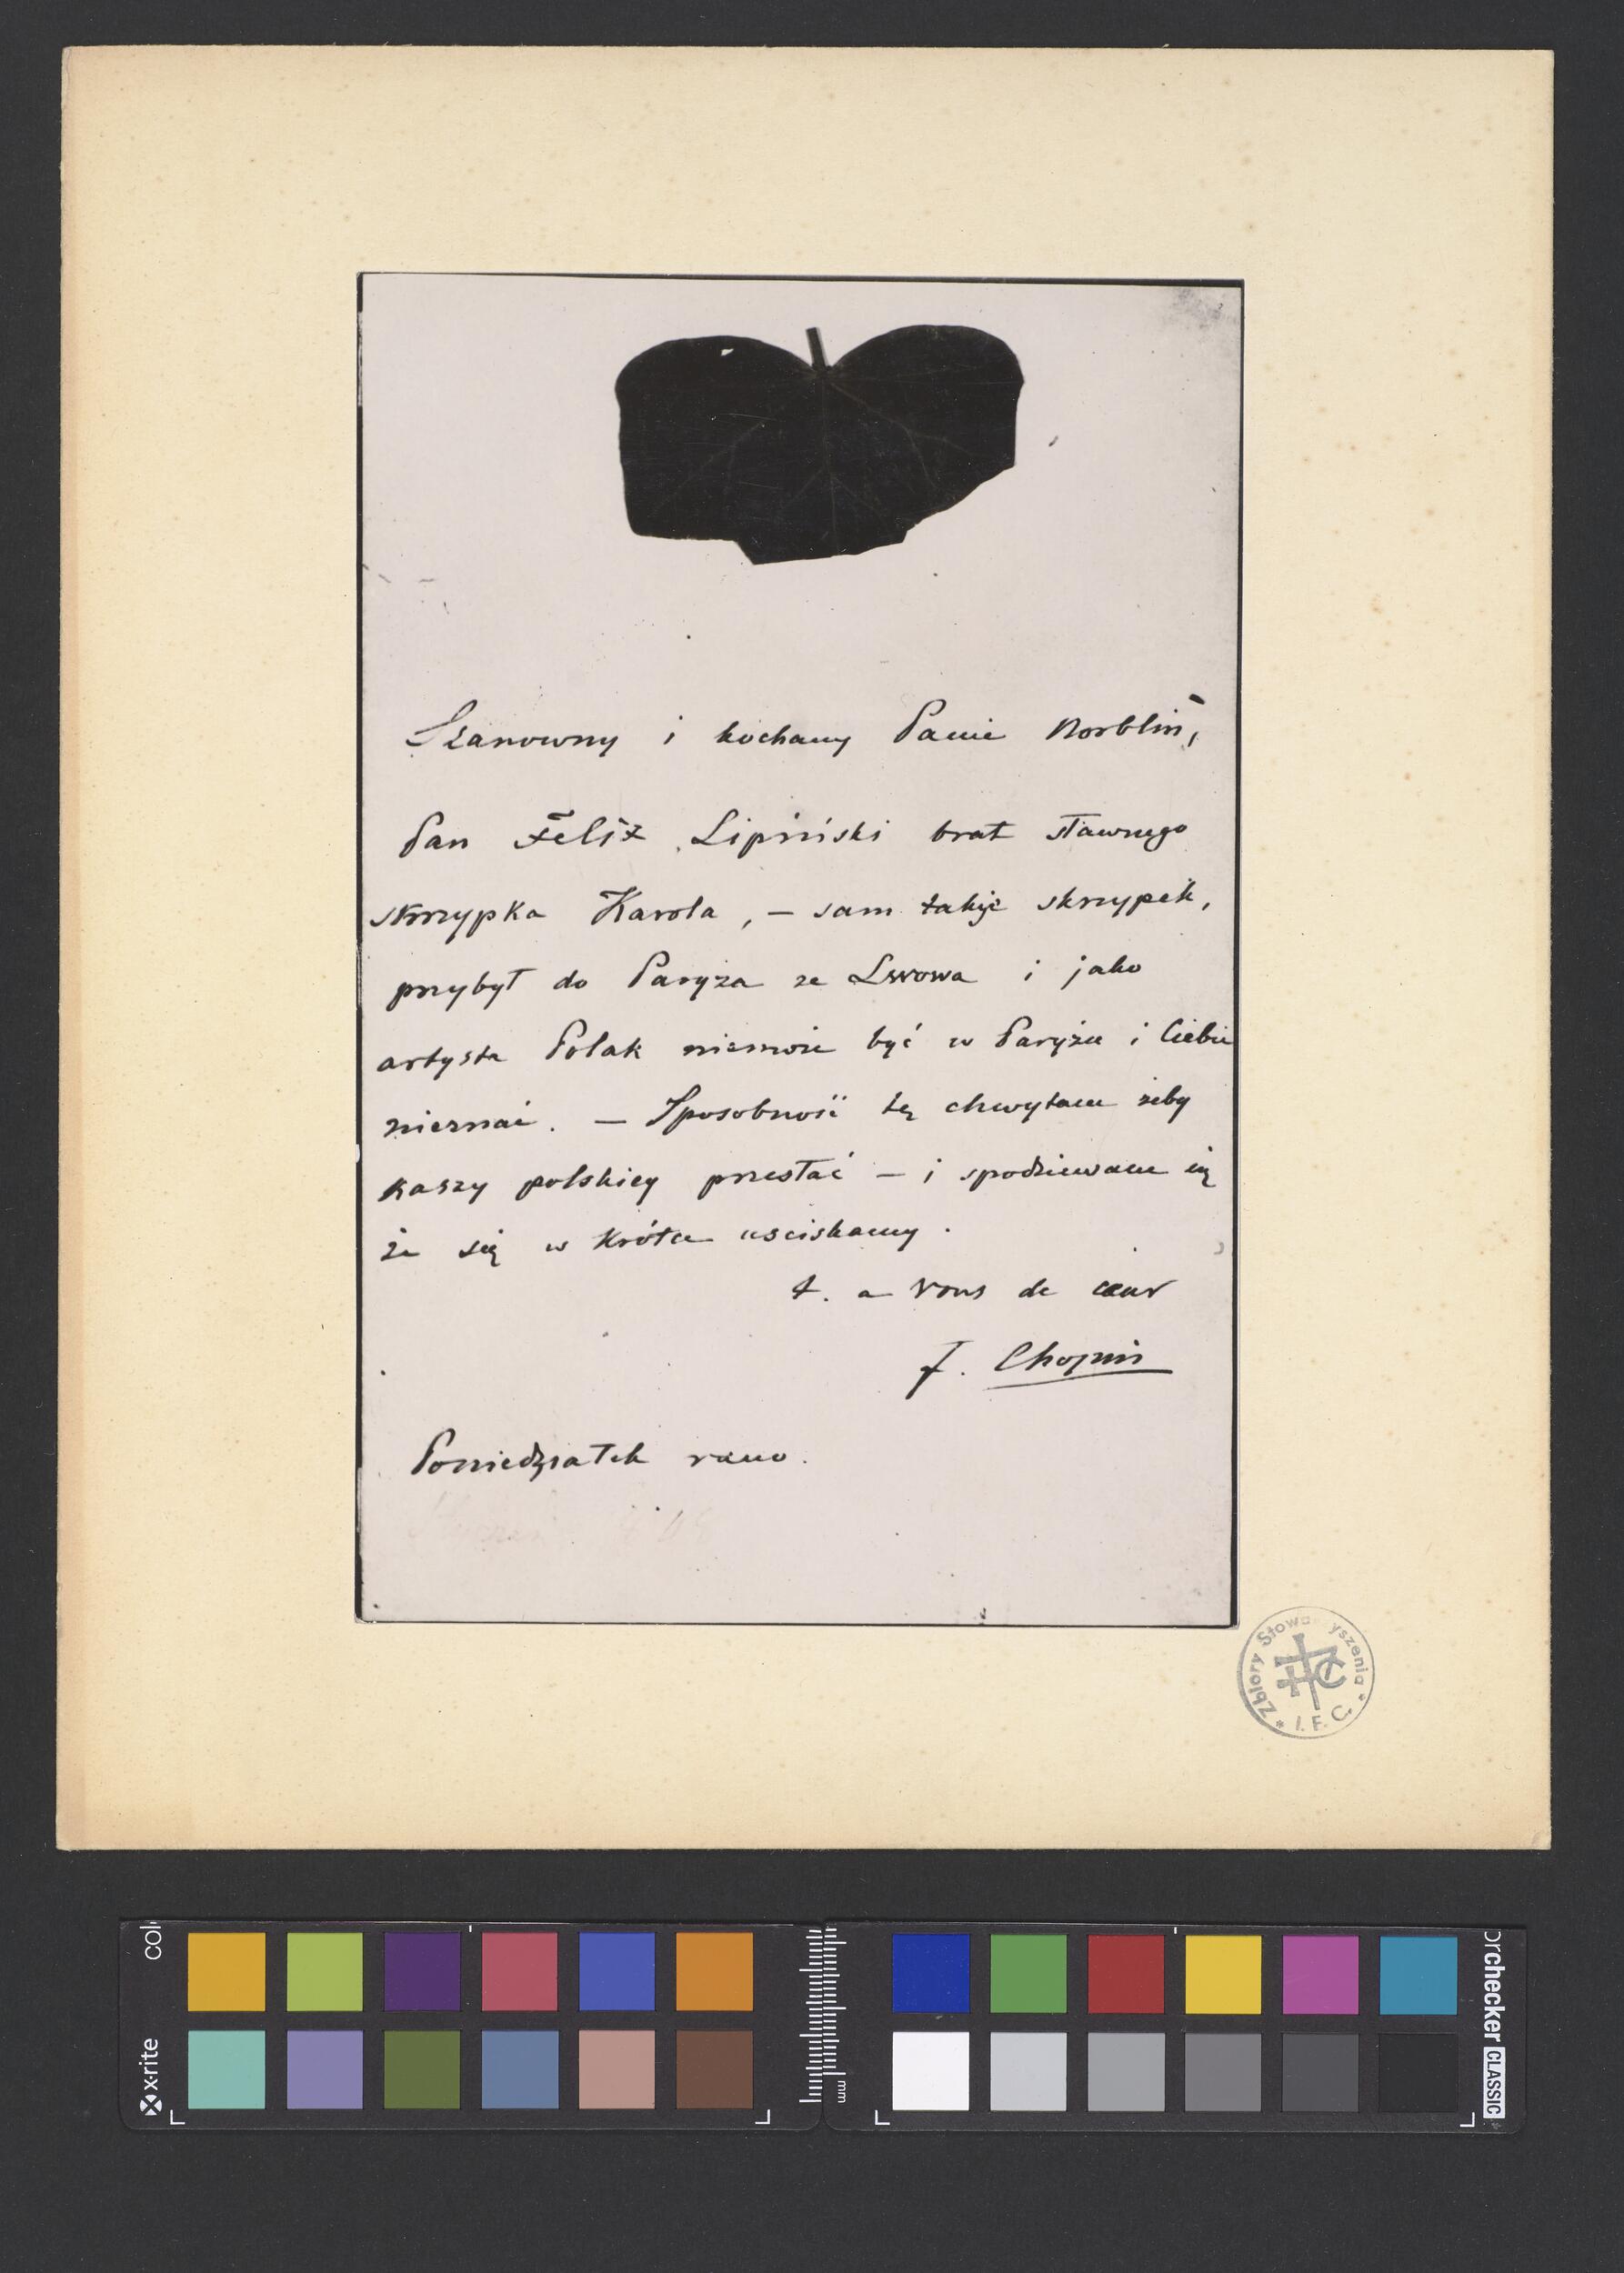 Szanowny i kochany Panie Norblin,
Pan Felix Lipiński brat sławnego
skrzypka Karola, — sam także skrzypek,
przybył do Paryża ze Lwowa i jako
artysta Polak niemoże być w Paryżu i Ciebie
nieznać. — Sposobność tę chwytam żeby
Kaszy polskiey przesłać — i spodziewam się
że się w krótce usciskamy.
t. a vous de cœur
F. Chopin
Poniedziałek rano.
Zbiory Stowa yszenia * I. F. C. *
x-rite
colorchecker CLASSIC
mm